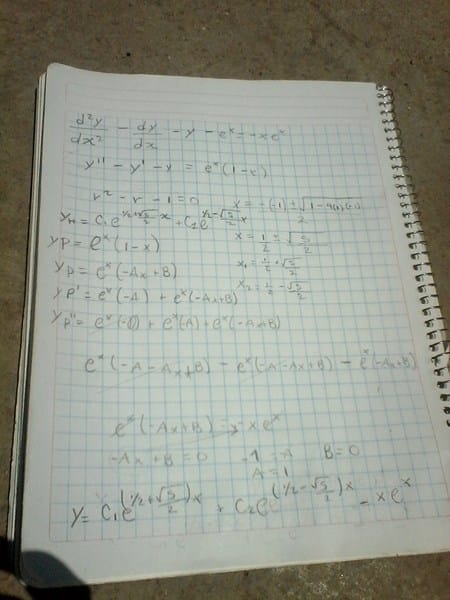 d²y/dx² - dy/dx - y - eˣ = -xeˣ
y'' - y' - y = eˣ(1-x)
r² - r - 1 = 0
x = -(-1) ± √1-4(1)(-1) / 2
yH = C₁e^(1/2+√5/2 x) + C₂e^(1/2-√5/2 x)
x = 1/2 ± √5/2
yp = eˣ(1-x)
x₁ = 1/2 + √5/2
yp = eˣ(-Ax+B)
x₂ = 1/2 - √5/2
yp' = eˣ(-A) + eˣ(-Ax+B)
yp'' = eˣ + eˣ(A) + eˣ(-Ax+B)
eˣ(-A-Ax+B) - eˣ(-A-Ax+B) - eˣ(-Ax+B)
eˣ(-Ax+B) = -xeˣ
-Ax+B=0 -1=-A B=0
A=1
y = C₁e^(1/2+√5/2)x + C₂e^(1/2-√5/2)x - xeˣ